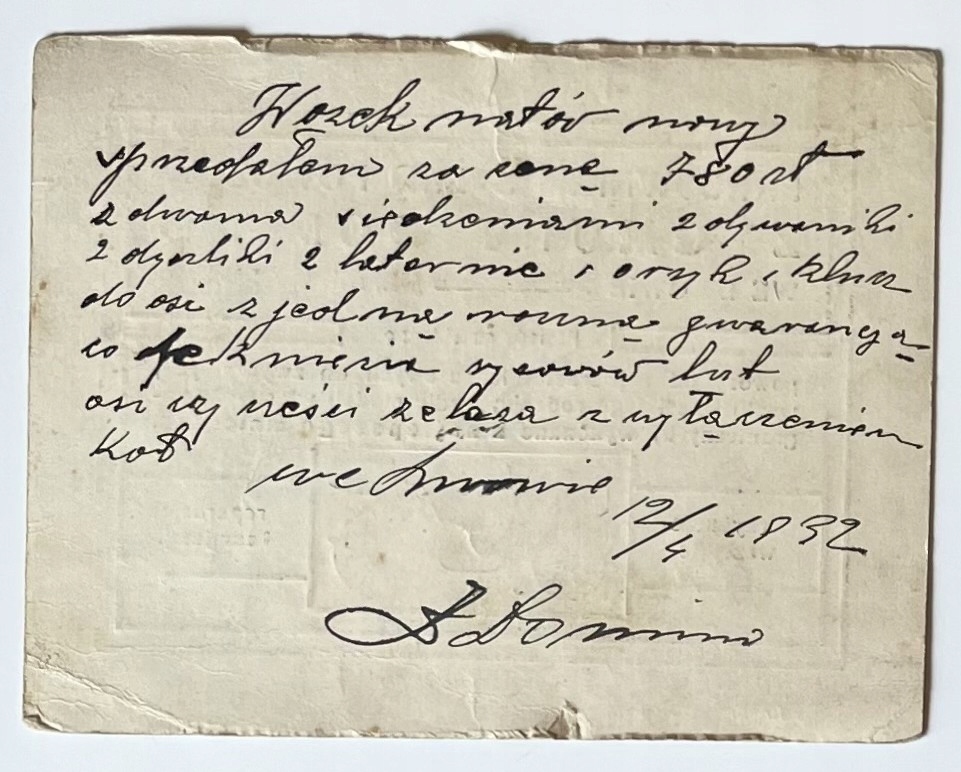 Wozek natór nowy
sprzedałem za cenę 780 zł
z dwoma siedzeniami 2 dywaniki
2 dyszliki 2 latarnie i oryk i klucz
do osi z jedną roczną gwarancyą
co pęknięcia rysorów lub
osi wy ueści żelaza z wyłączeniem
Koł
we Lwowie
12/4 1832
Domino